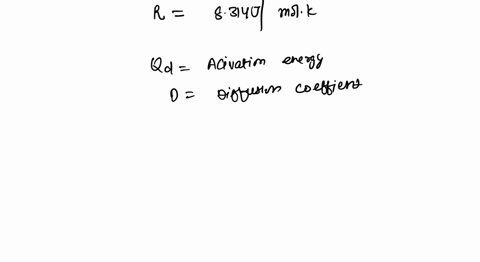 R = 8.314J/mol.k
Qd = Acivation energy
D = Diffusion coeffient